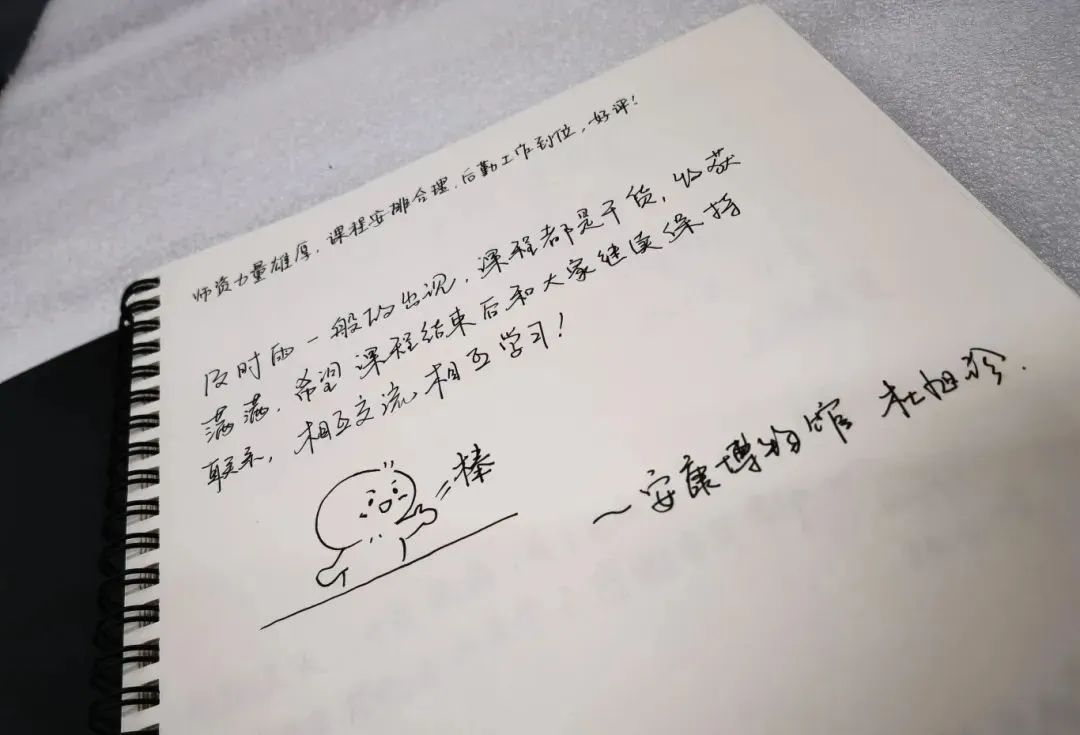 师资力量雄厚，课程安排合理，后勤工作到位，好评！
及时雨一般的出现，课程都是干货，收获
满满，希望课程结束后和大家继续保持
联系，相互交流，相互学习！
棒
～安康博物馆 杜旭珍.